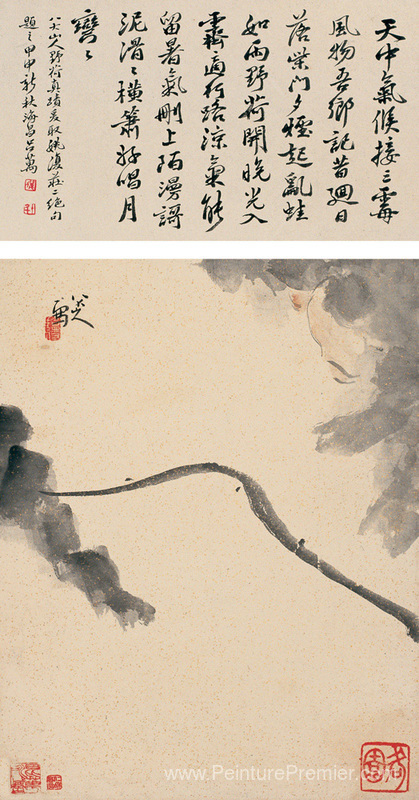 天中氣候接三霉
風物吾鄉記昔廻日
落柴門夕煙起亂蛙
如雨野荷開晚光入
霽適行路涼氣能
留暑氣刪上陌漫謌
泥滑〻橫簫好唱月
彎〻
八大山人野荷真蹟爰取姚莊二絕句
題之甲申新秋海昌呂萬
八大山人
www.PeinturePremier.com